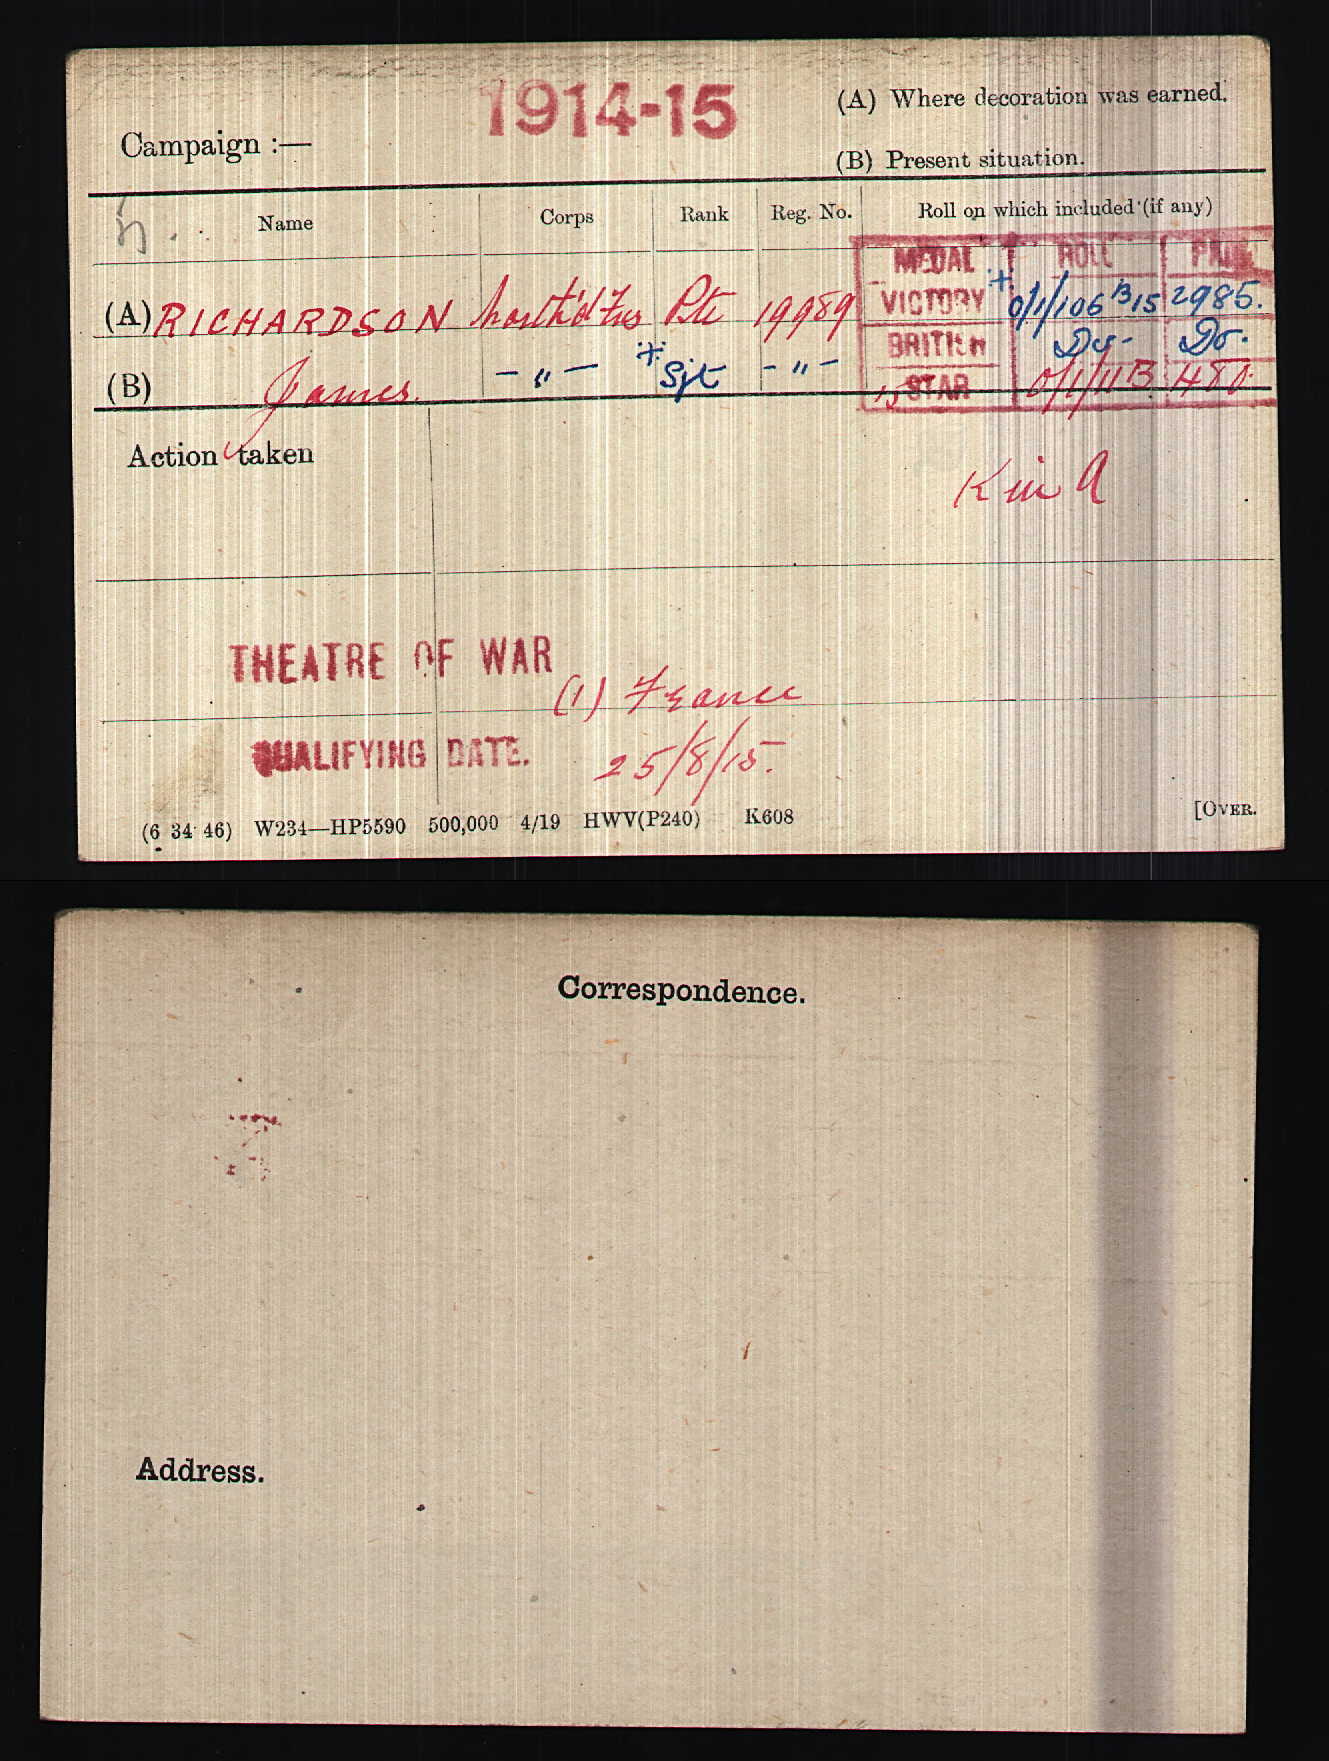 1914-15
Campaign :—
(A) Where decoration was earned.
(B) Present situation.
Name Corps Rank Reg. No. Roll on which included (if any)
MEDAL ROLL PAGE
(A) RICHARDSON North'd Fus Pte 19989 VICTORY + 0/1/106 B15 2985.
BRITISH Do- Do.
(B) James — " — + Sjt - " - 15 STAR 0/1/11B 480.
Action taken
K in A
THEATRE OF WAR
(1) France
QUALIFYING DATE. 25/8/15.
(6 34 46) W234—HP5590 500,000 4/19 HWV(P240) K608
[OVER.
Correspondence.
Address.